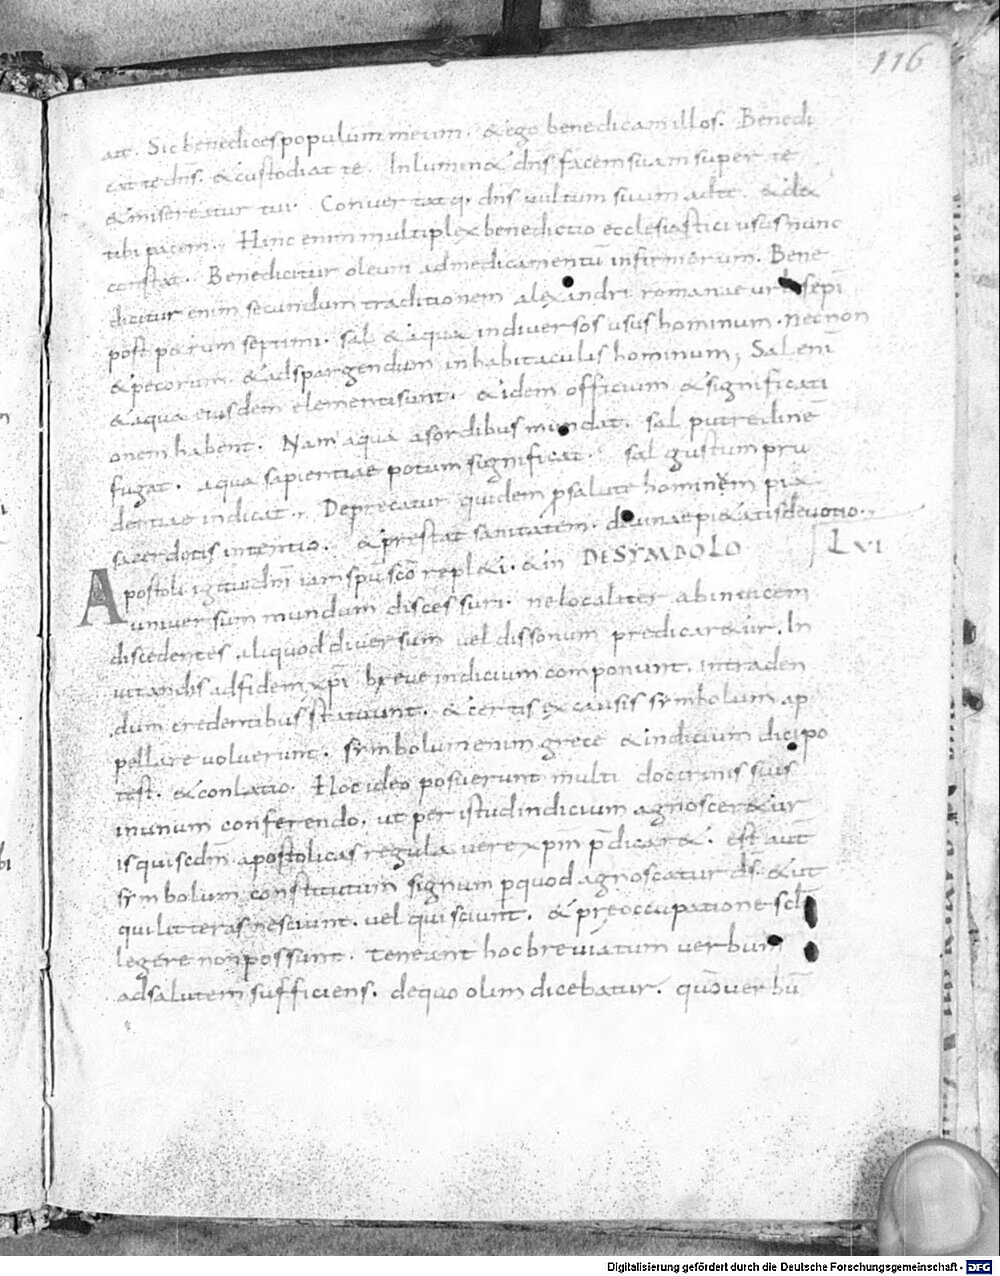 116
ait. Sic benedices populum meum. & ego benedicam illos. Benedi
cat te dn̄s. & custodiat te. Inlumin& dn̄s faciem suam super te
& misereatur tui. Convertatq. dn̄s uultum suum ad te. & d&
tibi pacem. Hinc enim multiplex benedictio ecclesiastici usus nunc
constat. Benedicitur oleum ad medicamentū infirmorum. Bene
dicitur enim secundum traditionem alexandri romanae urbis epī
post p&rum septimi. sal & aqua in diuersos usus hominum. necnon
& pecorum. & ad spargendum in habitaculis hominum; Sal enī
& aqua eiusdem elementi sunt. & idem officium & significati
onem habent. Nam aqua a sordibus mundat. sal putredinē
fugat. aqua sapientiae potum significat. sal gustum pru
dentiae indicat. Deprecatur quidem p salute hominem pia
sacerdotis intentio. & prestat sanitatem. diuinae pi&atis deuotio.
DE SYMBOLO LVI
Apostoli igitur dn̄i iam spū scō repl&i. & in
uniuersum mundum discessuri. ne localiter ab inuicem
discedentes aliquod diuersum uel dissonum predicar&ur. In
uitandis ad fidem xp̄i breue indicium componunt. intraden
dum credentibus statuunt. & certis ex causis symbolum ap
pellare uoluerunt. symbolum enim grece & indicium dici po
test. & conlatio. Hoc ideo posuerunt multi doctrinis suis
in unum conferendo. ut per istud indicium agnoscer&ur
is qui scdm̄ apostolicas regula uere xpm̄ p̄dicar&. est aut̄
symbolum constitutum signum p quod agnoscatur ds̄. & ut
qui litteras nesciunt. uel qui sciunt. & preoccupatione scl̄i
legere non possunt. teneant hoc breuiatum uerbum
ad salutem sufficiens. de quo olim dicebatur. qm̄ uerbū
Digitalisierung gefördert durch die Deutsche Forschungsgemeinschaft - DFG